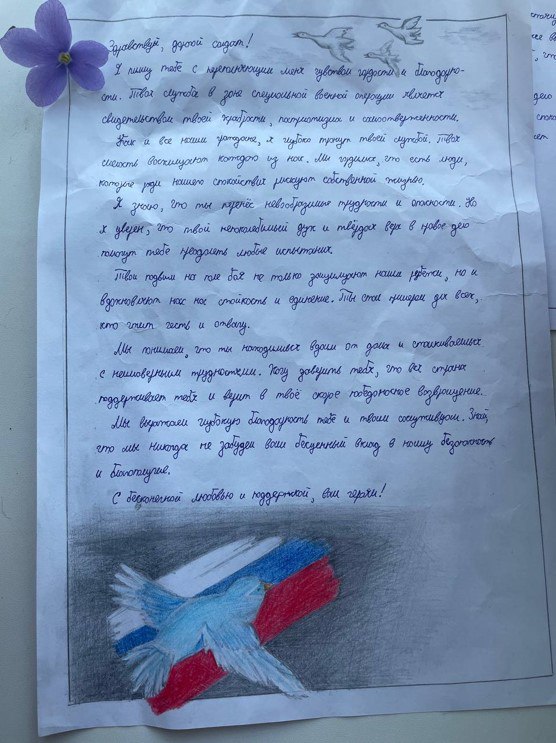 Здравствуй, дорогой солдат!
Я пишу тебе с переполняющим меня чувством гордости и благодарно-
сти. Твоя служба в зоне специальной военной операции является
свидетельством твоей храбрости, патриотизма и самоотверженности.
Как и все наши граждане, я глубоко тронут твоей службой. Твоя
смелость восхищает каждого из нас. Мы гордимся, что есть люди,
которые ради нашего спокойствия рискуют собственной жизнью.
Я знаю, что ты перенёс невообразимые трудности и опасности. Но
я уверен, что твой непоколебимый дух и твёрдая вера в правое дело
помогут тебе преодолеть любые испытания.
Твои подвиги на поле боя не только защищают наши рубежи, но и
вдохновляют нас на стойкость и единение. Ты стал примером для всех,
кто чтит честь и отвагу.
Мы понимаем, что ты находишься вдали от дома и сталкиваешься
с неимоверными трудностями. Хочу заверить тебя, что вся страна
поддерживает тебя и верит в твоё скорое победоносное возвращение.
Мы выражаем глубокую благодарность тебе и твоим сослуживцам. Знай,
что мы никогда не забудем ваш бесценный вклад в нашу безопасность
и благополучие.
С бесконечной любовью и поддержкой, ваш герои!